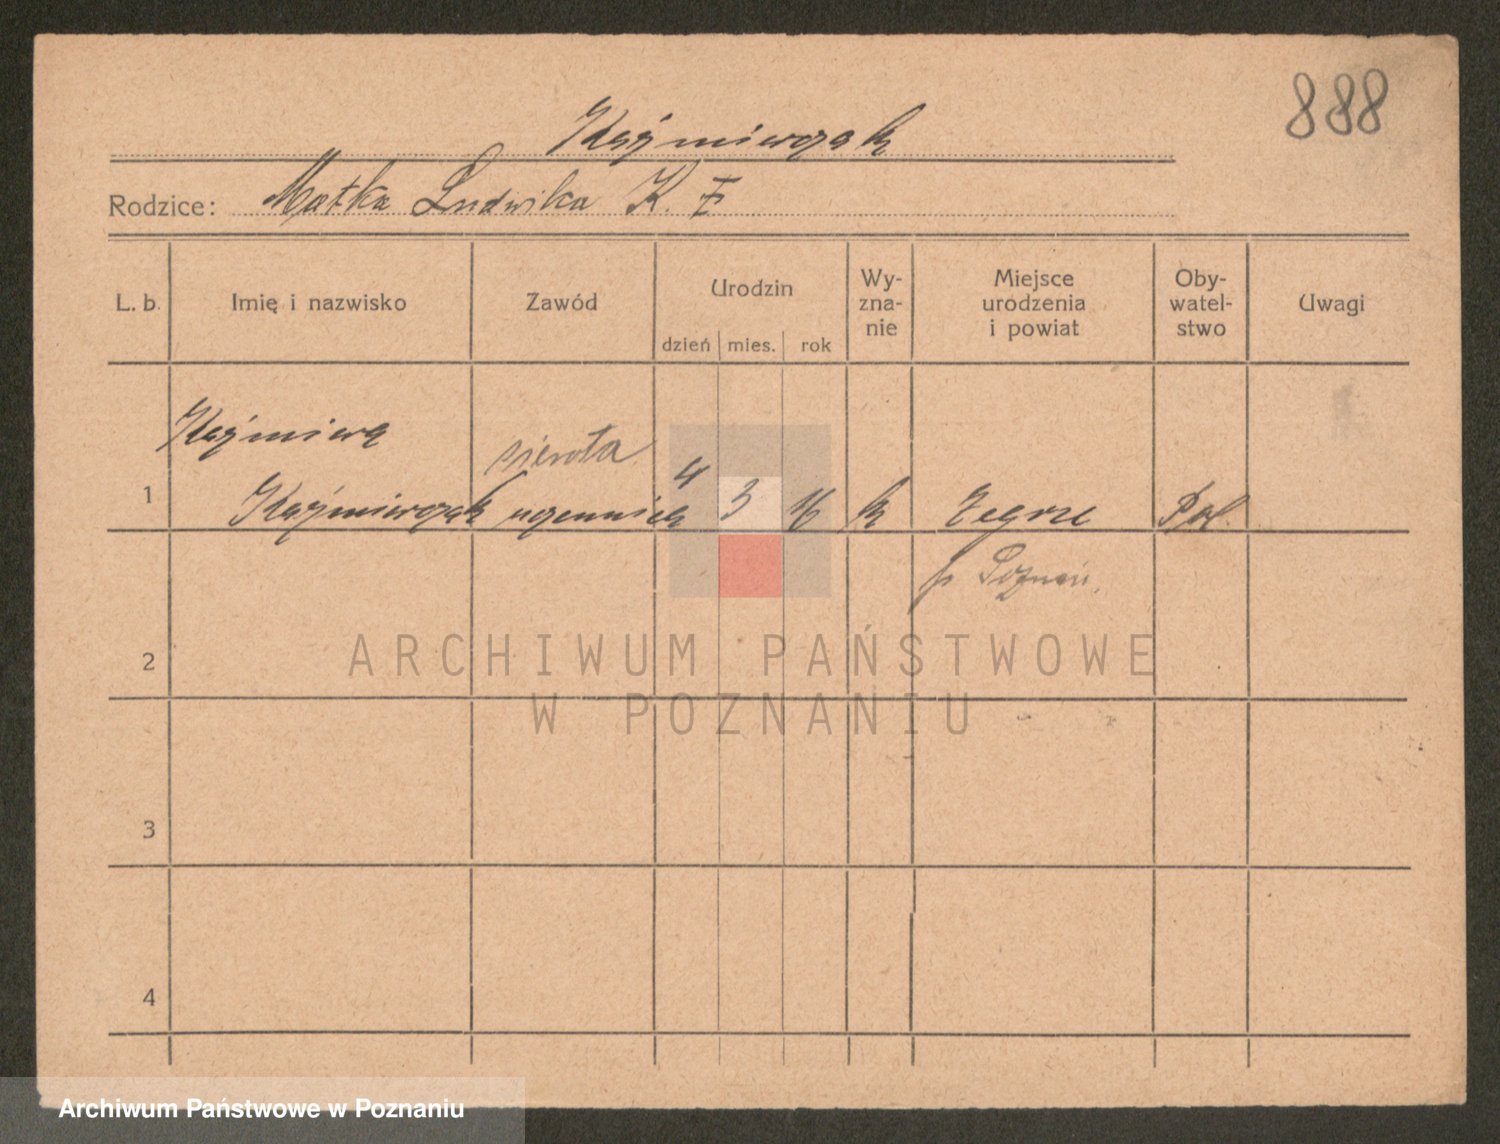 888
Kaźmierczak
Rodzice: Matka Ludwika K. Z
L. b. Imię i nazwisko Zawód Urodzin dzień mies. rok Wy-zna-nie Miejsce urodzenia i powiat Oby-watel-stwo Uwagi
Kaźmierz sierota
1 Kaźmierczak uczennica 4 3 16 k Zegrze Pol.
p Poznań.
2
ARCHIWUM PAŃSTWOWE
W POZNANIU
3
4
Archiwum Państwowe w Poznaniu